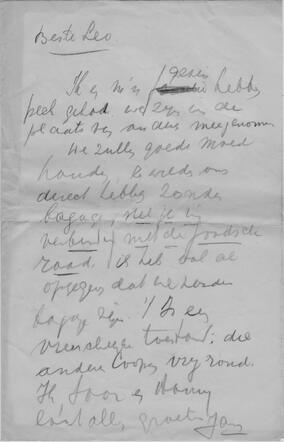 Beste Leo.
Ik en m'n gezin hebben
pech gehad. we zijn in de
plaats van anderen meegenomen
We zullen goede moed
houden,
direct hebben zonder
bagage, stel je in
verbinding met de Joodsche
raad. is het zal al
opgegeven dat we zonder
bagage zijn. 't Is een
vreeselijke toestand; die
anderen loopen vrij rond.
Ik
groeten Jan